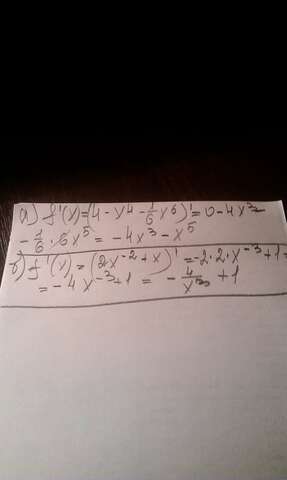 а) f'(x)=(4 - x⁴ - 1/6 x⁶)' = 0 - 4x³ -
- 1/6 · 6x⁵ = -4x³ - x⁵
б) f'(x) = (2x⁻² + x)' = -2·2·x⁻³ + 1 =
= -4x⁻³ + 1 = - 4/x³ + 1